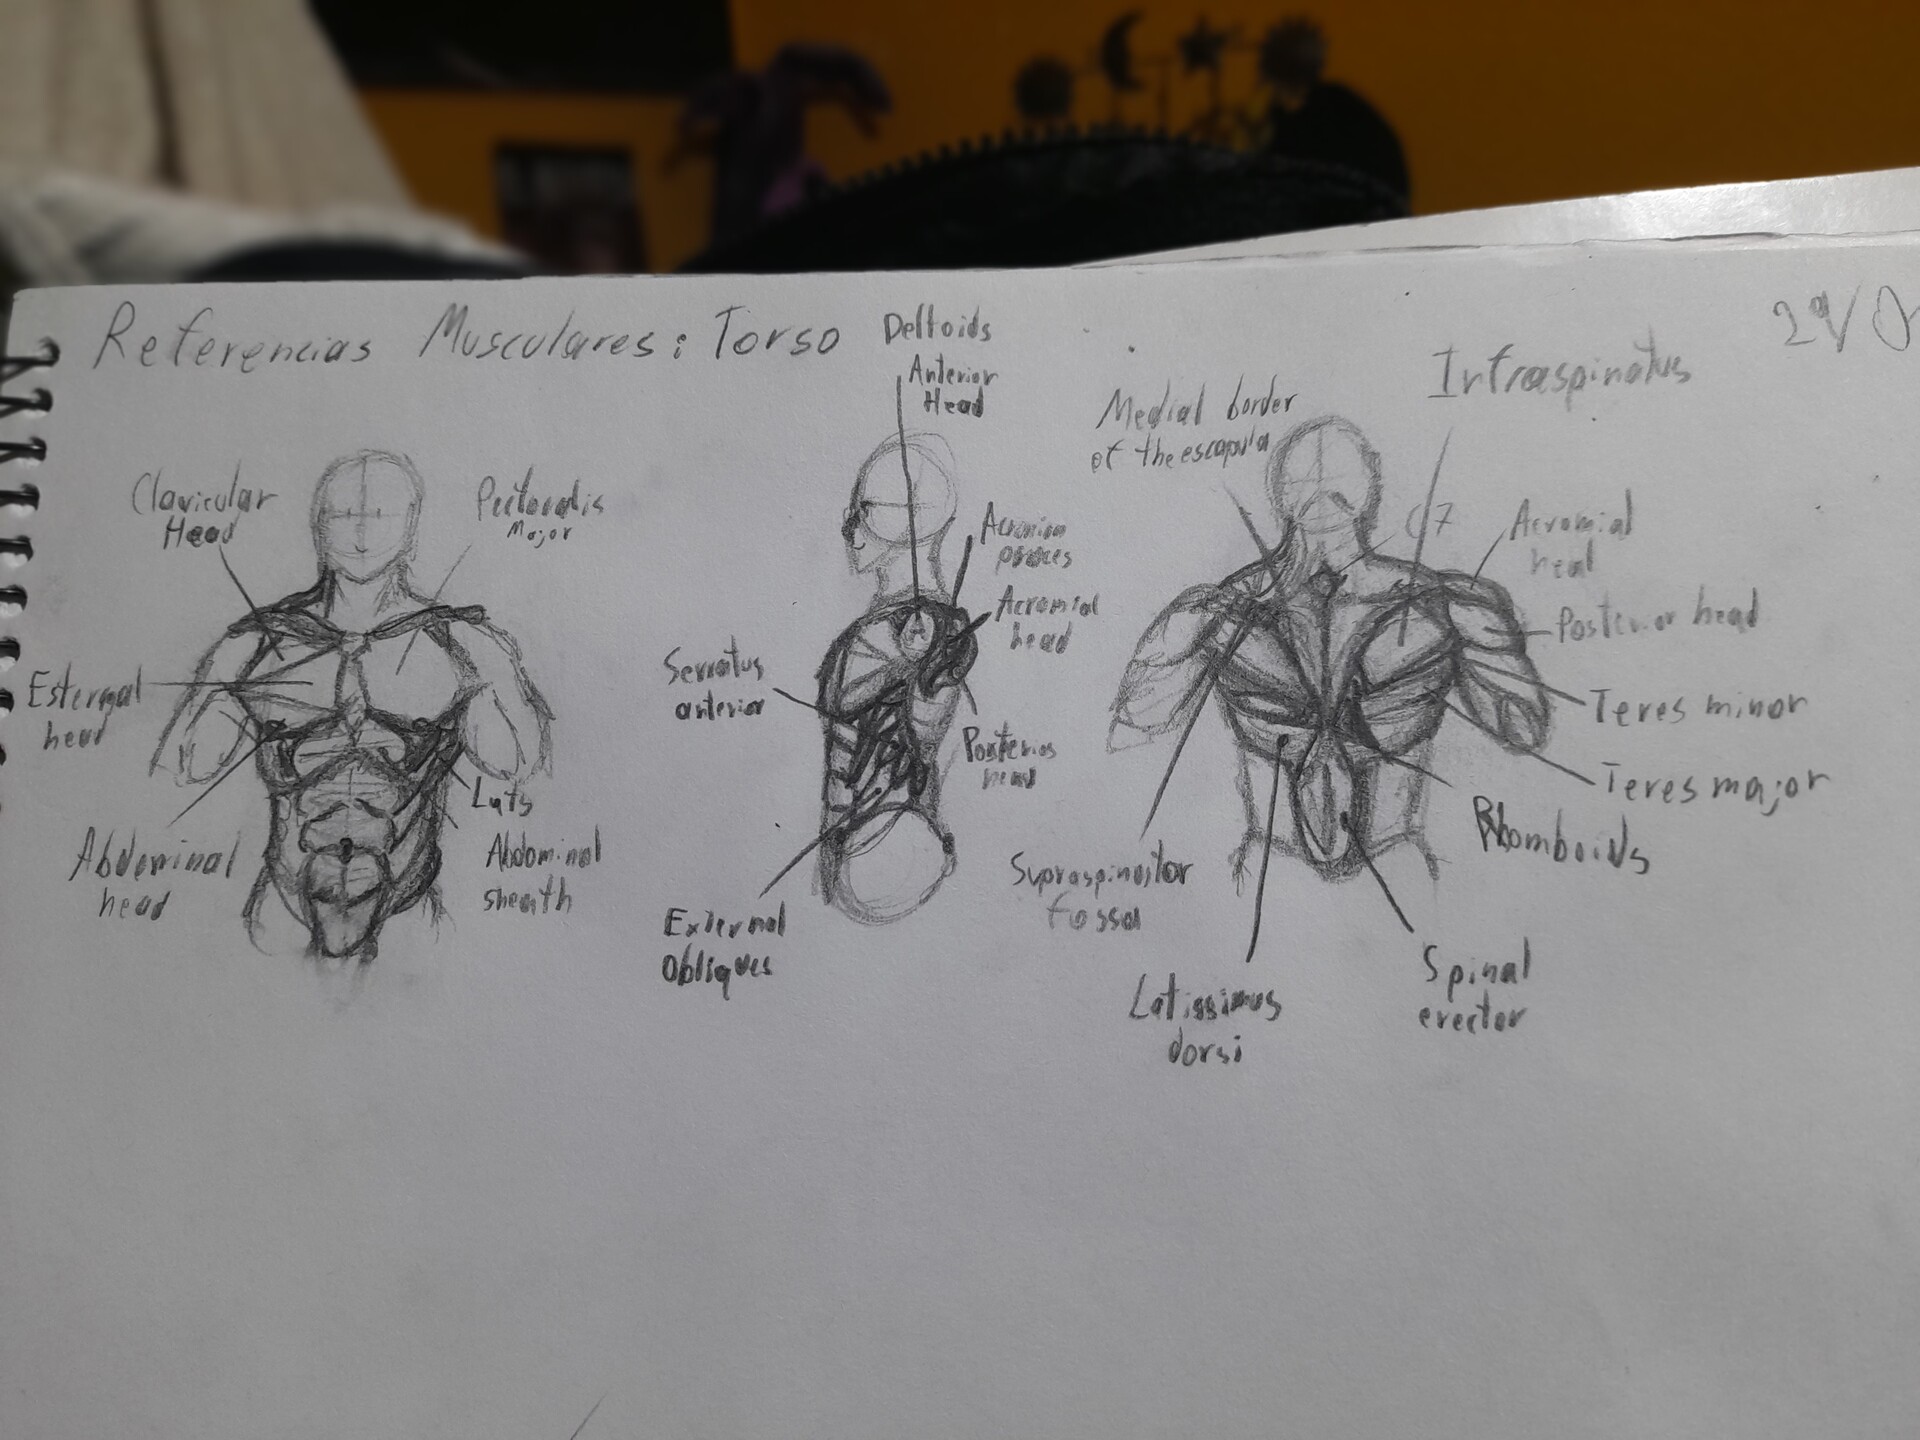 Referencias Musculares: Torso
Deltoids
Anterior
Head
Clavicular
Head
Pectoralis
Major
Esternal
head
Abdominal
head
Lats
Abdominal
sheath
Acromion
Acromial
head
Serratus
anterior
Posterior
head
External
Obliques
Medial border
of the escapula
Infraspinatus
C7
Acromial
head
Posterior head
Teres minor
Teres major
Rhomboids
Spinal
erector
Latissimus
dorsi
fossa
A